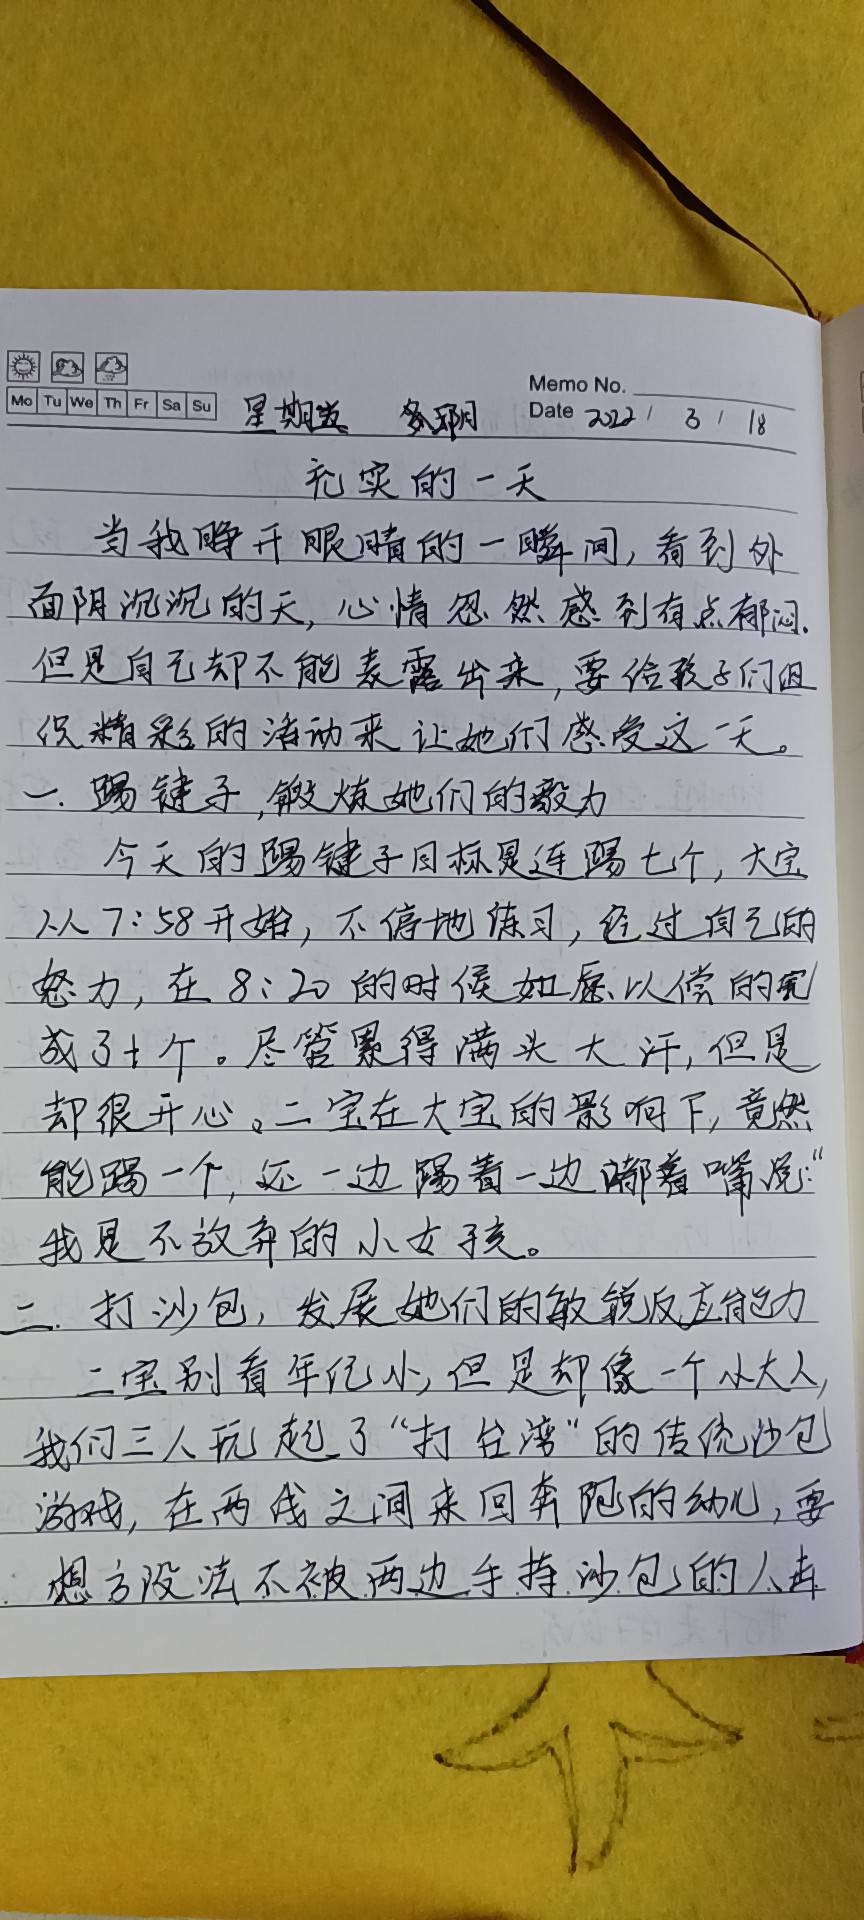 Mo Tu We Th Fr Sa Su 星期五 多阴 Memo No.
Date 2022 / 3 / 18
充实的一天
当我睁开眼睛的一瞬间,看到外
面阴沉沉的天,心情忽然感到有点郁闷.
但是自己却不能表露出来,要给孩子们组
织精彩的活动来让她们感受这一天。
一.踢键子,锻炼她们的毅力
今天的踢键子目标是连踢七个,大宝
从7:58开始,不停地练习,经过自己的
怒力,在8:20的时候如愿以偿的完
成了七个。尽管累得满头大汗,但是
却很开心。二宝在大宝的影响下,竟然
能踢一个,还一边踢着一边嘟着嘴说:“
我是不放弃的小女孩。
二.打沙包,发展她们的敏锐反应能力
二宝别看年纪小,但是却像一个小大人,
我们三人玩起了“打台湾”的传统沙包
游戏,在两线之间来回奔跑的幼儿,要
想方设法不被两边手持沙包的人击